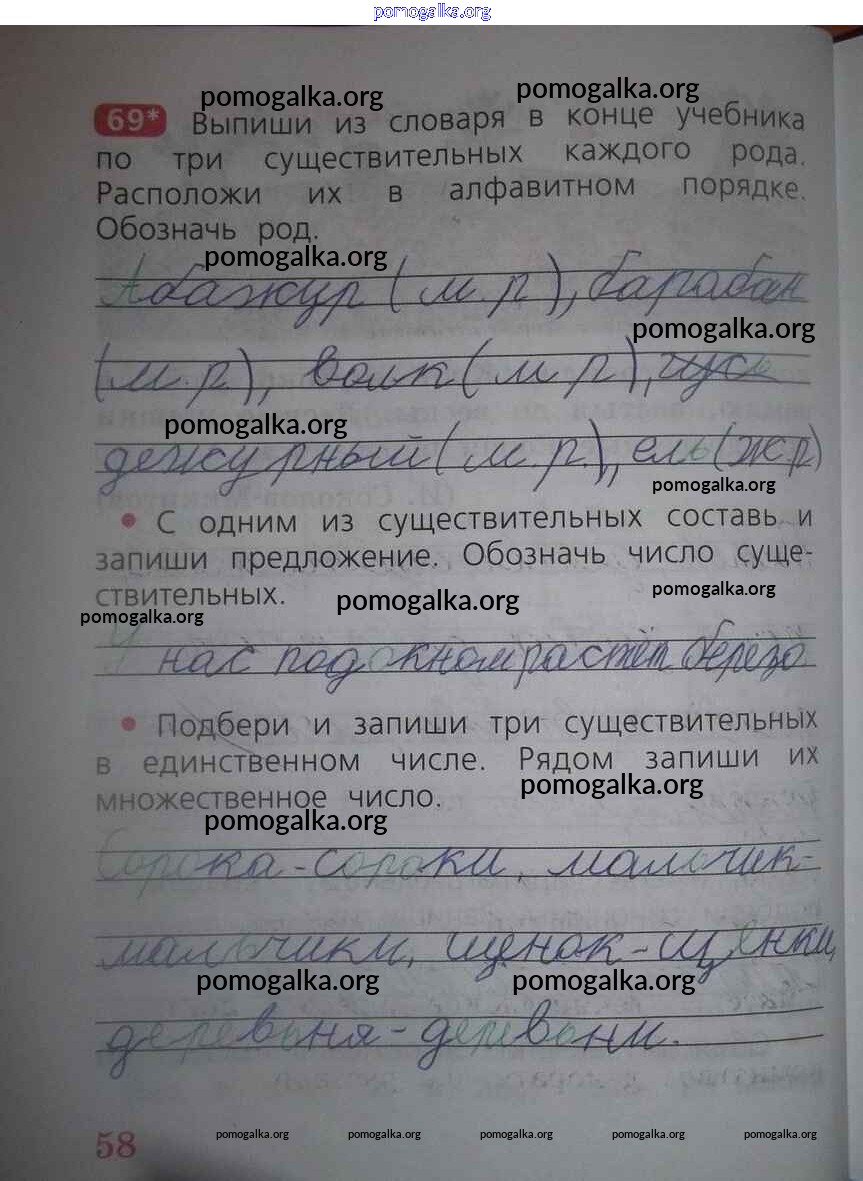 pomogalka.org
pomogalka.org pomogalka.org
69* Выпиши из словаря в конце учебника
по три существительных каждого рода.
Расположи их в алфавитном порядке.
Обозначь род.
pomogalka.org
Абажур (м.р), барабан
pomogalka.org
(м.р), волк (м.р), гусь
pomogalka.org
дежурный (м.р.), ель (ж.р)
pomogalka.org
• С одним из существительных составь и
запиши предложение. Обозначь число суще-
ствительных.
pomogalka.org pomogalka.org pomogalka.org
У нас под окном растёт берёза
• Подбери и запиши три существительных
в единственном числе. Рядом запиши их
множественное число.
pomogalka.org
pomogalka.org
Сорока - сороки, мальчик-
мальчики, щенок - щенки,
pomogalka.org pomogalka.org
деревьня - деревьни.
58
pomogalka.org pomogalka.org pomogalka.org pomogalka.org pomogalka.org